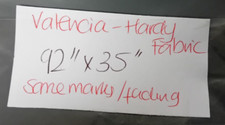 Valencia - Hardy
Fabric
92" x 35"
some marks/fading